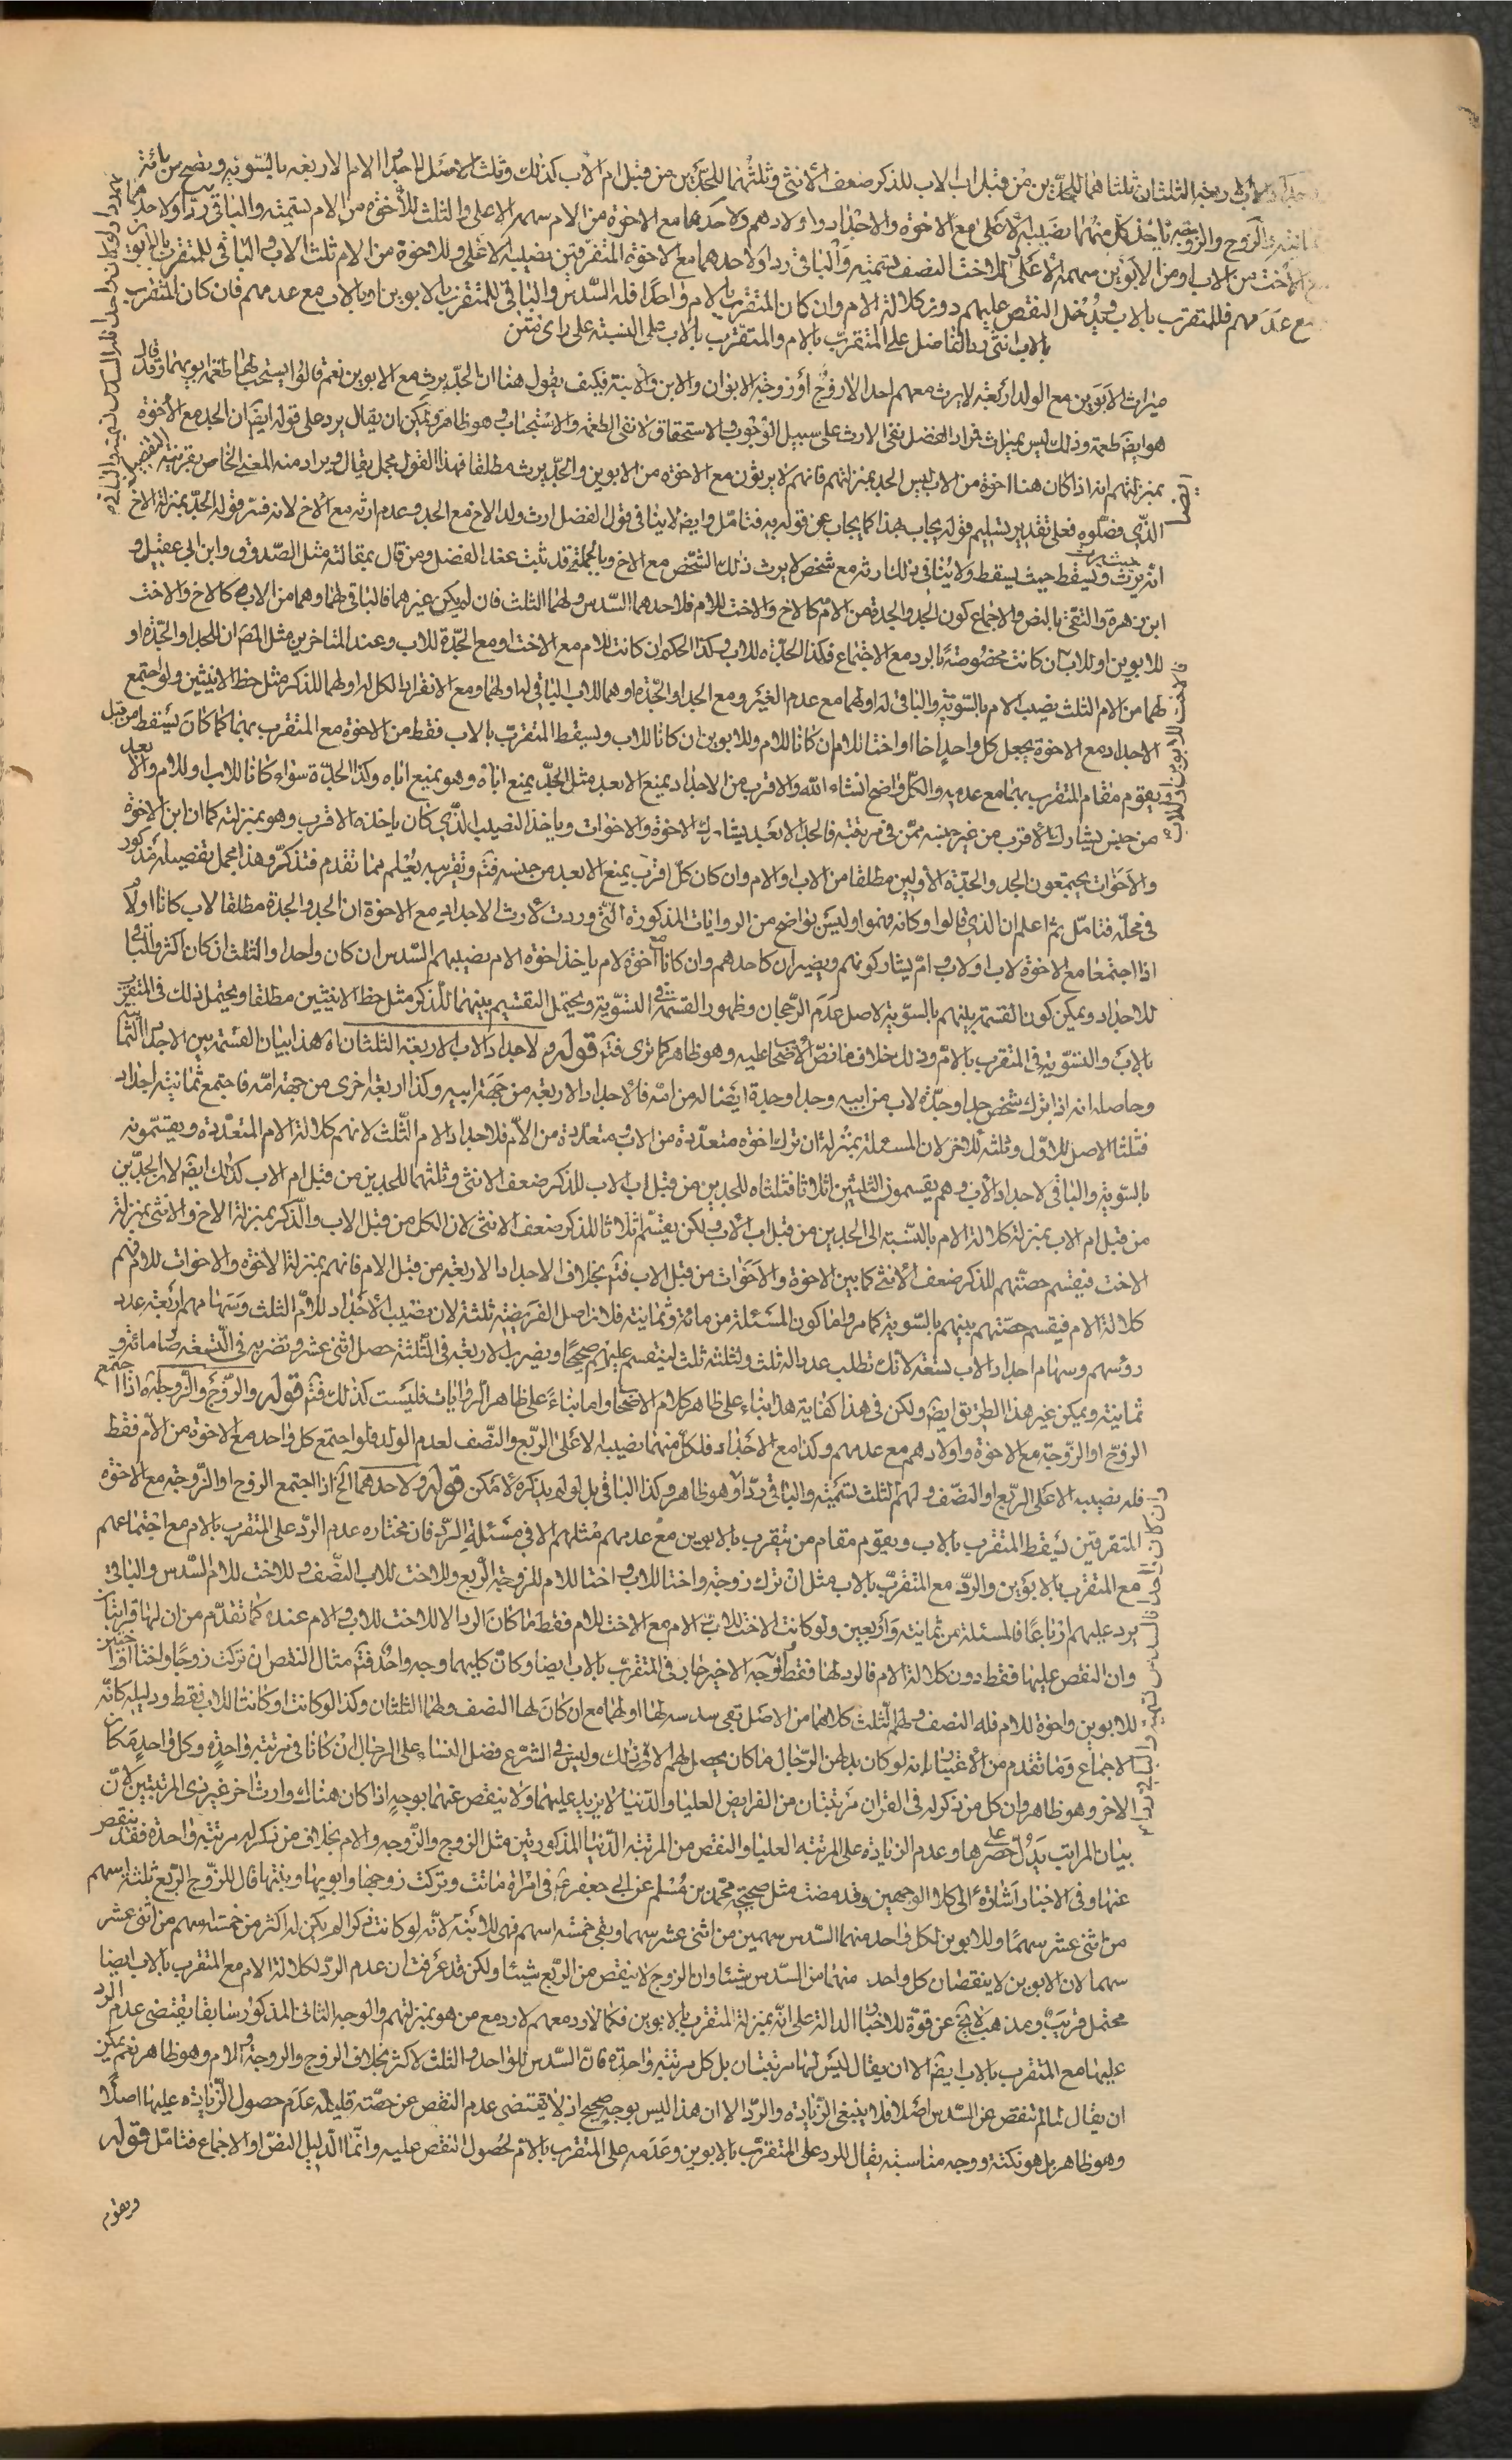 الاجداد الاربعة الثلثان ثلثاهما للجدين من قبل اب الاب للذكر ضعف الانثى وثلثهما للجدين من قبل ام الاب كذلك وثلث الاصل لاجداد الام الاربعة بالسوية ويصح من مائة
وثمانية والزوج والزوجة ياخذ كل منهما نصيبه الاعلى مع الاخوة والاجداد واولادهم ولاحدهما مع الاخوة من الام سهمه الاعلى والثلث للاخوة من الام تسمية والباقي ردا ولاحدهما
مع الاخت من الاب او من الابوين سهمه الاعلى وللاخت النصف تسمية والباقي ردا ولاحدهما مع الاخوة المتفرقين نصيبه الاعلى وللاخوة من الام ثلث الاب والباقي للمتقرب بالابوين
مع عدمهم فللمتقرب بالاب ويدخل النقص عليهم دون كلالة الام وان كان المتقرب بالام واحدا فله السدس والباقي للمتقرب بالابوين او بالاب مع عدمهم فان كان المتقرب
بالاب انثى رد الفاضل على المتقرب بالام والمتقرب بالاب على النسبة على راى نتن
ميراث الابوين مع الولد اربعة لا يرث معهم احد الا زوج او زوجة الابوان والابن والابنة فكيف يقول هنا ان الجد يرث مع الابوين نعم قالوا يستحب لهما طعمة ابويهما وقد قال
هو ايضا طعمة وذلك ليس بميراث فمراد الفضل نفى الارث على سبيل الوجوب والاستحقاق لا نفى الطعمة والاستحباب وهو ظاهر ويمكن ان يقال يرد على قوله ايضا ان الجد مع الاخوة
بمنزلتهم انه اذا كان هنا اخوة من الاب ليس الجد بمنزلتهم فانهم لا يرثون مع الاخوة من الابوين والجد يرث مطلقا فهذا القول مجمل يقال ويراد منه المعنى الخاص بقرينة التفصيل
الذي فصلوه فعلى تقدير تسليم قوله يجاب بهذا كما يجاب عن قولهم به فتامل وايضا لا ينافى قول الفضل ارث ولد الاخ مع الجد وعدم ارثه مع الاخ لانه فسر قوله الجد بمنزلة الاخ
انه يرث حيث يرث ويسقط حيث يسقط ولا ينافى ذلك ارثه مع شخص لا يرث ذلك الشخص مع الاخ وبالجملة قد ثبت عند الفضل ومن قال بمقالته مثل الصدوق وابن ابي عقيل و
ابن زهرة والتقى بالنص والاجماع كون الجد والجدة من الام كالاخ والاخت للام فلاحدهما السدس ولهما الثلث فان لم يكن غيرهما فالباقي لهما وهما من الاب كالاخ والاخت
للابوين او للاب ان كانت مخصوصة بالرد مع الاجتماع فكذا الجدة للاب وكذا الحكم ان كانت للام مع الاخت او مع الجدة للاب وعند المتاخرين مثل المصن ان للجد او الجدة او
لهما من الام الثلث نصيب الام بالسوية والباقي له او لهما مع عدم الغير ومع الجد او الجدة او هما للاب الباقي له او لهما ومع الانفراد الكل له او لهما للذكر مثل حظ الانثيين ولو اجتمع
الاجداد مع الاخوة يجعل كل واحد اخا او اختا للام ان كانا للام وللابوين ان كانا للاب ويسقط المتقرب بالاب فقط من الاخوة مع المتقرب بهما كما كان يسقط من قبل
ويقوم مقام المتقرب بهما مع عدمه والكل واضح انشاء الله والاقرب من الاجداد يمنع الابعد مثل الجد يمنع اباه وهو يمنع اباه وكذا الجدة سواء كانا للاب او للام والابعد
من جنس يشارك الاقرب من غير جنسه ممن في مرتبته فالجد الابعد يشارك الاخوة والاخوات وياخذ النصيب الذي كان ياخذه الاقرب وهو بمنزلته كما ان ابن الاخوة
والاخوات يجتمعون الجد والجدة الاولين مطلقا من الاب او الام وان كان كل اقرب يمنع الابعد من جنسه فتم وتقريبه يعلم مما تقدم فتذكر وهذا مجمل تفصيله مذكور
في محله فتامل ثم اعلم ان الذي قالوا وكانه فهموا وليس بواضح من الروايات المذكورة التي وردت لارث الاجداد مع الاخوة ان الجد والجدة مطلقا لاب كانا او لام
اذا اجتمعا مع الاخوة لاب او لاب وام يشاركونهم ويصيران كاحدهم وان كانا اخوة لام ياخذ اخوة الام نصيبهم السدس ان كان واحدا والثلث ان كان اكثر والباقي
للاجداد ويمكن كون القسمة بينهم بالسوية لاصل عدم الرجحان وظهور القسمة في التسوية ويحتمل التقسيم بينهما للذكر مثل حظ الانثيين مطلقا ويحتمل ذلك في المتقرب
بالاب والتسوية في المتقرب بالام وذلك خلاف ما نص الاصحاب عليه وهو ظاهر كما ترى فتم قوله ولاجداد الاب الاربعة الثلثان اه هذا بيان القسمة بين الاجداد الثمانية
وحاصله انه اذا ترك شخص جدا وجدة لاب من ابيه وجدا وجدة ايضا له من امه فالاجداد الاربعة من جهة ابيه وكذا اربعة اخرى من جهة امه فاجتمع ثمانية اجداد
فثلثا الاصل للاول وثلثه للاخر لان المسئلة بمنزلة ان ترك اخوة متعددة من الاب ومتعددة من الام فلاجداد الام الثلث لانهم كلالة الام المتعددة ويقتسمونه
بالسوية والباقي لاجداد الاب وهم يقسمون الثلثين اثلاثا فثلثاه للجدين من قبل اب الاب للذكر ضعف الانثى وثلثهما للجدين من قبل ام الاب كذلك ايضا لان الجدين
من قبل ام الاب بمنزلة كلالة الام بالنسبة الى الجدين من قبل اب الاب ولكن يقتسم اثلاثا للذكر ضعف الانثى لان الكل من قبل الاب والذكر بمنزلة الاخ والانثى بمنزلة
الاخت فيقسم حصتهم للذكر ضعف الانثى كما بين الاخوة والاخوات من قبل الاب فتم بخلاف الاجداد الاربعة من قبل الام فانهم بمنزلة الاخوة والاخوات للام فهم
كلالة الام فيقسم حصتهم بينهم بالسوية كما مر واما كون المسئلة من مائة وثمانية فلان اصل الفريضة ثلثة لان نصيب الاجداد للام الثلث وسهامهم اربعة عدد
رؤسهم وسهام اجداد الاب تسعة لانك تطلب عددا له ثلث ولثلثه ثلث ليقسم عليهم صحيحا ويضرب الاربعة في الثلثة حصل اثنى عشر وتضربه في التسعة صار مائة و
ثمانية ويمكن غير هذا الطريق ايضا ولكن في هذا كفاية هذا بناء على ظاهر كلام الاصحاب واما بناء على ظاهر الروايات فليست كذلك فتم قوله والزوج والزوجة اه اذا اجتمع
الزوج او الزوجة مع الاخوة واولادهم مع عدمهم وكذا مع الاجداد فلكل منهما نصيبه الاعلى الربع والنصف لعدم الولد فلو اجتمع كل واحد مع الاخوة من الام فقط
فله نصيبه الاعلى الربع او النصف ولهم الثلث تسمية والباقي ردا وهو ظاهر وكذا الباقي بل لو لم يذكره لامكن قوله ولاحدهما الخ اذا اجتمع الزوج او الزوجة مع الاخوة
المتفرقين يسقط المتقرب بالاب ويقوم مقام من يتقرب بالابوين مع عدمهم مثلهم الا في مسئلة الرد فان مختاره عدم الرد على المتقرب بالام مع اجتماعهم
مع المتقرب بالابوين والرد مع المتقرب بالاب مثل ان ترك زوجة واختا للاب واختا للام للزوجة الربع وللاخت للاب النصف وللاخت للام السدس والباقي
يرد عليهم ارباعا فالمسئلة من ثمانية واربعين ولو كانت الاخت للاب والام مع الاخت للام فقط ما كان الرد الا للاخت للاب والام عنده كما تقدم من ان لها قرابتان
وان النقص عليها فقط دون كلالة الام فالرد لها فقط والوجه الاخير جار في المتقرب بالاب ايضا وكان كليهما وجه واحد فتم مثال النقص ان تركت زوجا واختا او اختين
للابوين واخوة للام فله النصف ولهم الثلث كلاهما من الاصل بقى سدسه لها او لهما مع ان كان لها النصف ولهما الثلثان وكذا لو كانت او كانتا للاب فقط ودليله كانه
الاجماع وما تقدم من الاعتبار انه لو كان بدلهن الرجال ما كان يحصل لهم الا ذلك وليس في الشرع فضل النساء على الرجال ان كانا في مرتبة واحدة وكل واحد مكان
الاخر وهو ظاهر وان كل من ذكر له في القران مرتبتان من الفرايض العليا والدنيا لا يزيد عليهما ولا ينقص عنهما بوجه اذا كان هناك وارث اخر غير ذى المرتبتين لان
بيان المراتب يدل على حصرها وعدم الزيادة على المرتبة العليا والنقص من المرتبة الدنيا المذكورتين مثل الزوج والزوجة والام بخلاف من ذكر له مرتبة واحدة فقد ينقص
عنها وفي الاخبار اشارة الى كلا الوجهين وقد مضت مثل صحيحة محمد بن مسلم عن ابي جعفر ع في امراة ماتت وتركت زوجها وابويها وبنتها قال للزوج الربع ثلثة اسهم
من اثنى عشر سهما وللابوين لكل واحد منهما السدس سهمين من اثنى عشر سهما وبقى خمسة اسهم فهى للابنة لانه لو كانت ذكرا لم يكن له اكثر من خمسة اسهم من اثنى عشر
سهما لان الابوين لا ينقصان كل واحد منهما من السدس شيئا وان الزوج لا ينقص من الربع شيئا ولكن قد عرفت ان عدم الرد لكلالة الام مع المتقرب بالاب ايضا
محتمل قريب ومذهب لا يخ عن قوة للاخبار الدالة على انه بمنزلة المتقرب بالابوين فكما لا رد معهم لا رد مع من هو بمنزلتهم والوجه الثاني المذكور سابقا يقتضى عدم الرد
عليها مع المتقرب بالاب ايضا الا ان يقال ليس لها مرتبتان بل كل مرتبة واحدة فان السدس للواحد والثلث لاكثر بخلاف الزوج والزوجة والام وهو ظاهر نعم يمكن
ان يقال لما لم تنقص عن السدس اصلا فلا ينبغى الزيادة والرد الا ان هذا ليس بوجه صحيح اذ لا يقتضى عدم النقص عن حصته قليلة عدم حصول الزيادة عليها اصلا
وهو ظاهر بل هو نكتة ووجه مناسبة يقال للرد على المتقرب بالابوين وعدمه على المتقرب بالام لحصول النقص عليه وانما الدليل النص او الاجماع فتامل قوله
ويقوم